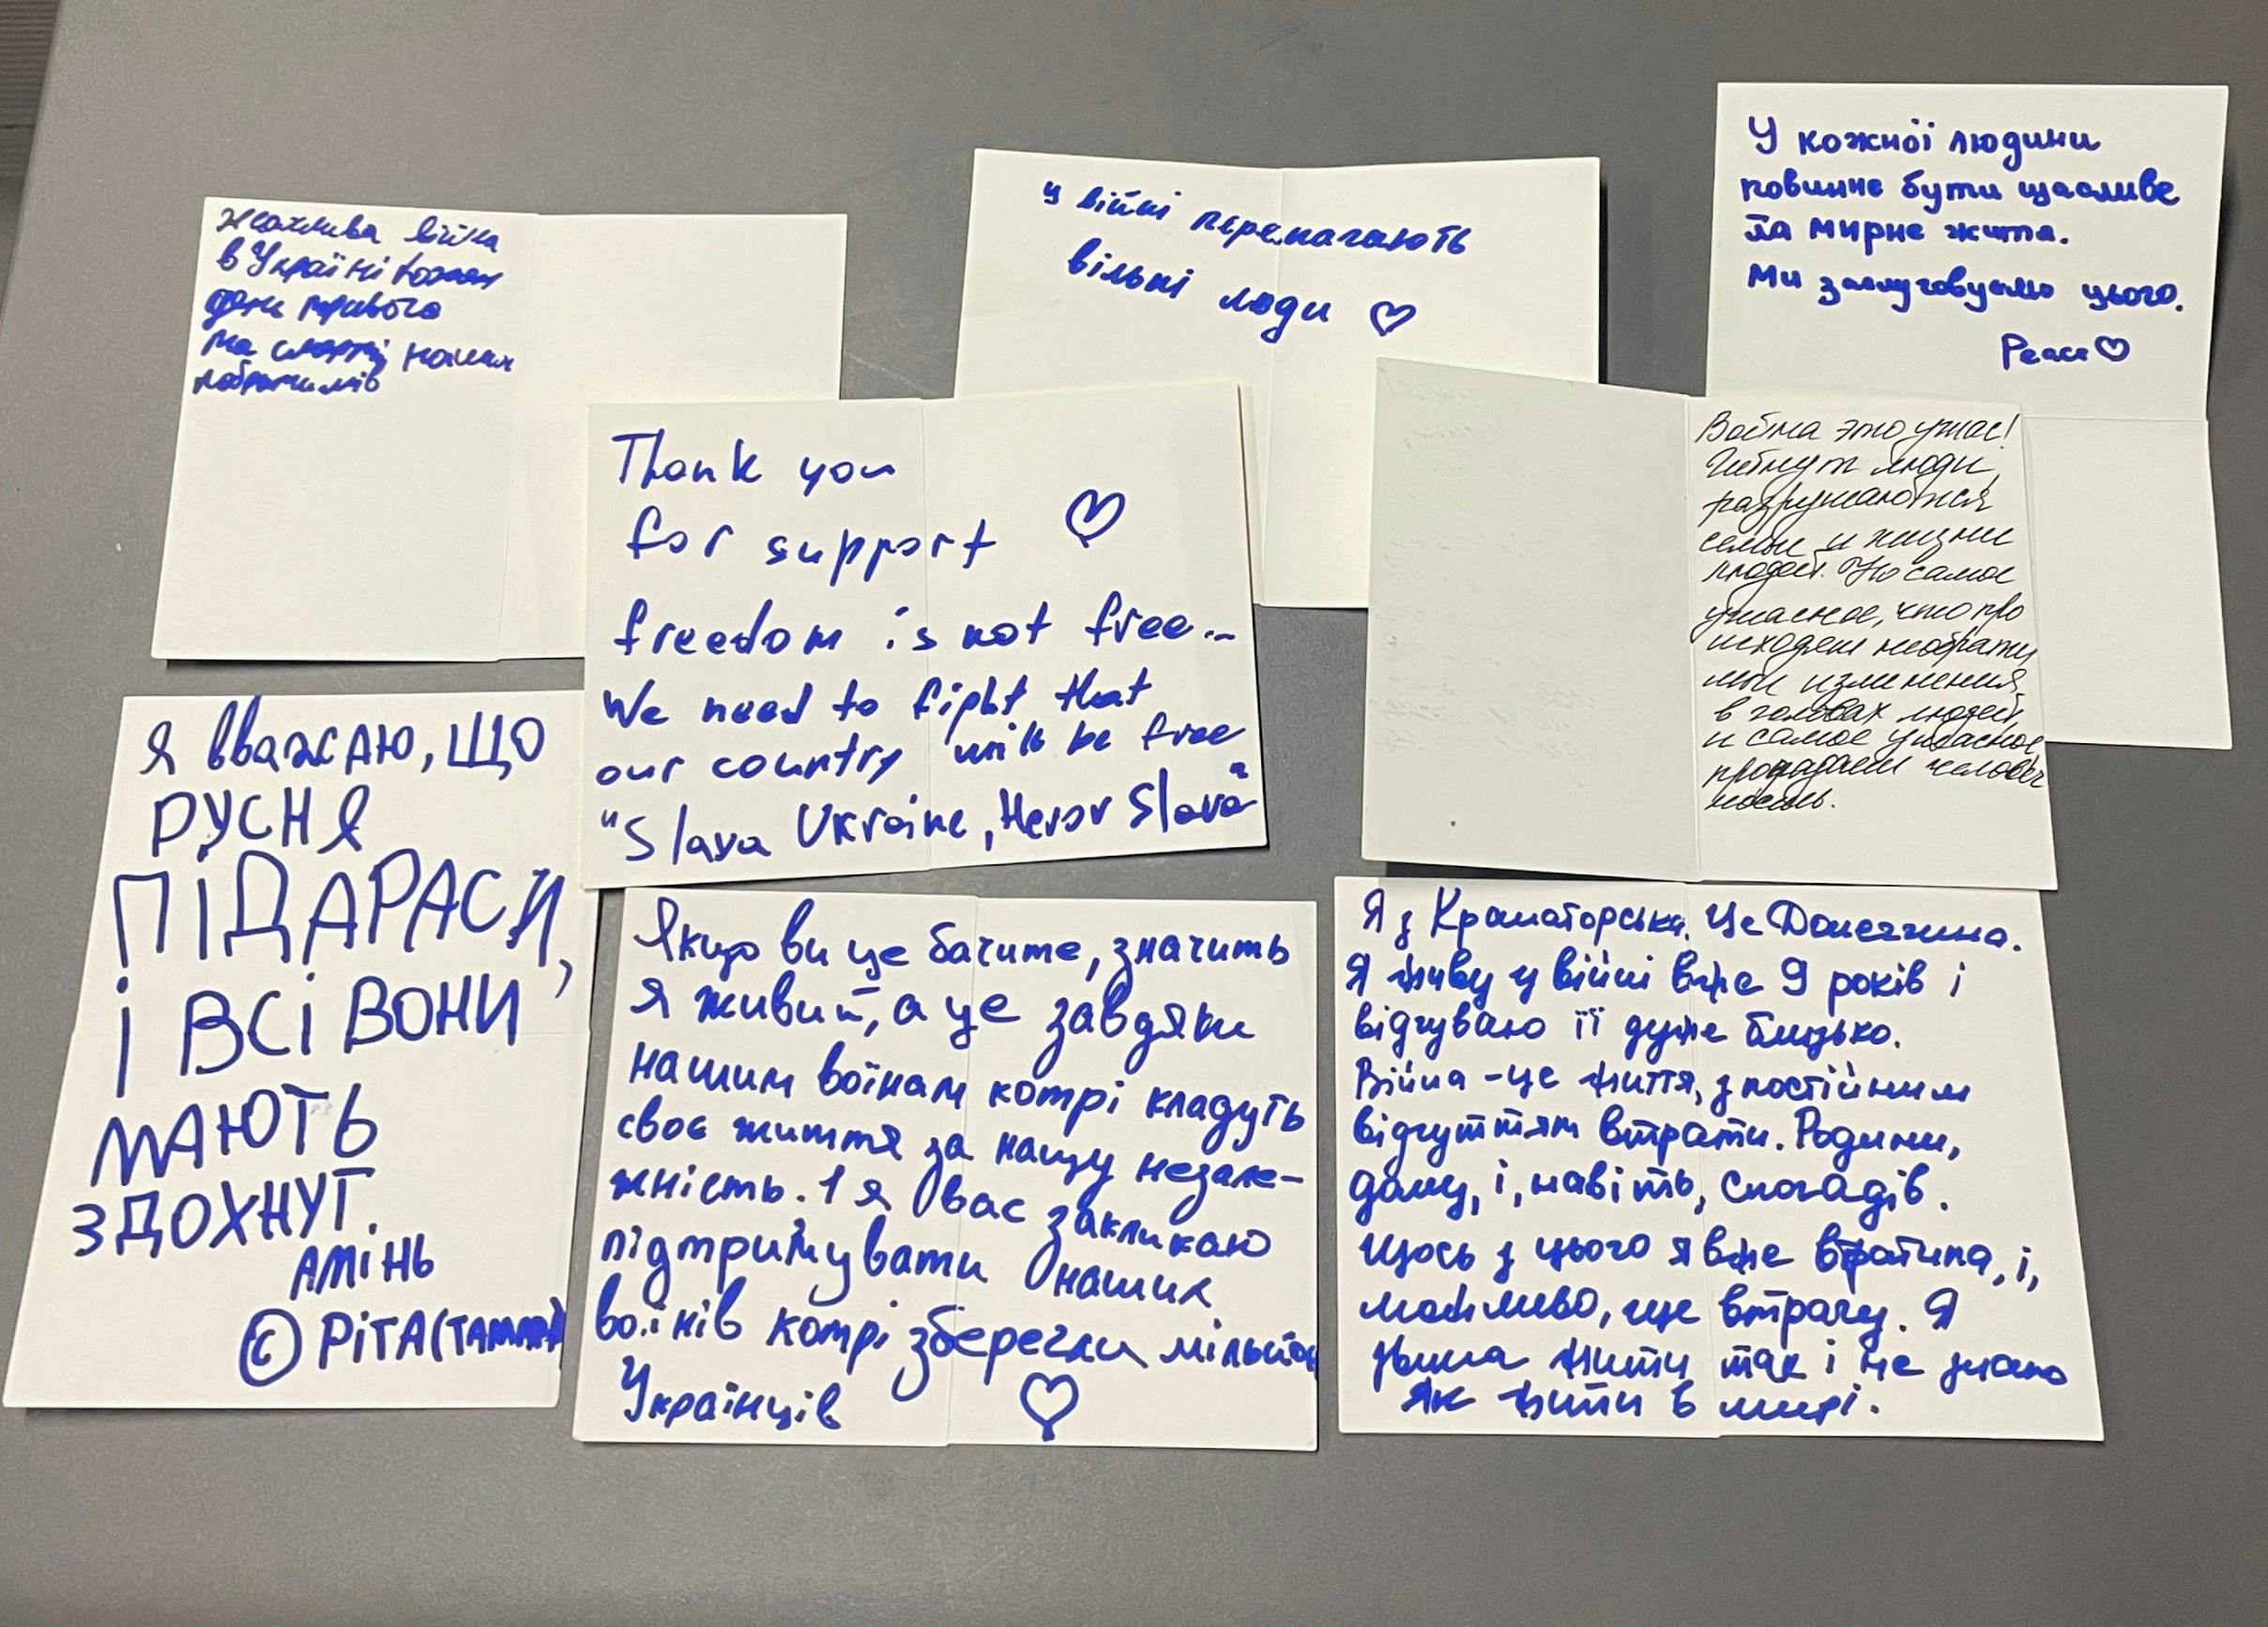 Жахлива війна
в Україні кожен
день тривога
на смерті наших
побратимів
у війні перемагають
вільні люди ♡
У кожної людини
повинне бути щасливе
та мирне життя.
Ми заслуговуємо цього.
Peace ♡
Thank you
for support ♡
freedom is not free...
We need to fight that
our country will be free
"Slava Ukraine, Heror Slava"
Война это ужас!
Гибнут люди,
разрушаются
семьи и жизни
людей. Но самое
ужасное, что про
исходят необрати
мые изменения
в головах людей,
и самое ужасное
пропадает человеч
ность.
Я вважаю, що
РУСНЯ
ПІДАРАСИ,
І ВСІ ВОНИ
МАЮТЬ
ЗДОХНУТ.
АМІНЬ
© РІТА(
Якщо ви це бачите, значить
я живий, а це завдяки
нашим воїнам котрі кладуть
своє життя за нашу незале-
жність. І я вас закликаю
підтримувати наших
воїнів котрі зберегли мільйон
Українців ♡
Я з Краматорська. Це Донеччина.
Я живу у війні вже 9 років і
відчуваю її дуже близько.
Війна - це життя, з постійним
відчуттям втрати. Родини,
дому, і, навіть, спогадів.
Щось з цього я вже втратила, і,
можливо, ще втрачу. Я
звикла жити так і не знаю
як жити в мирі.